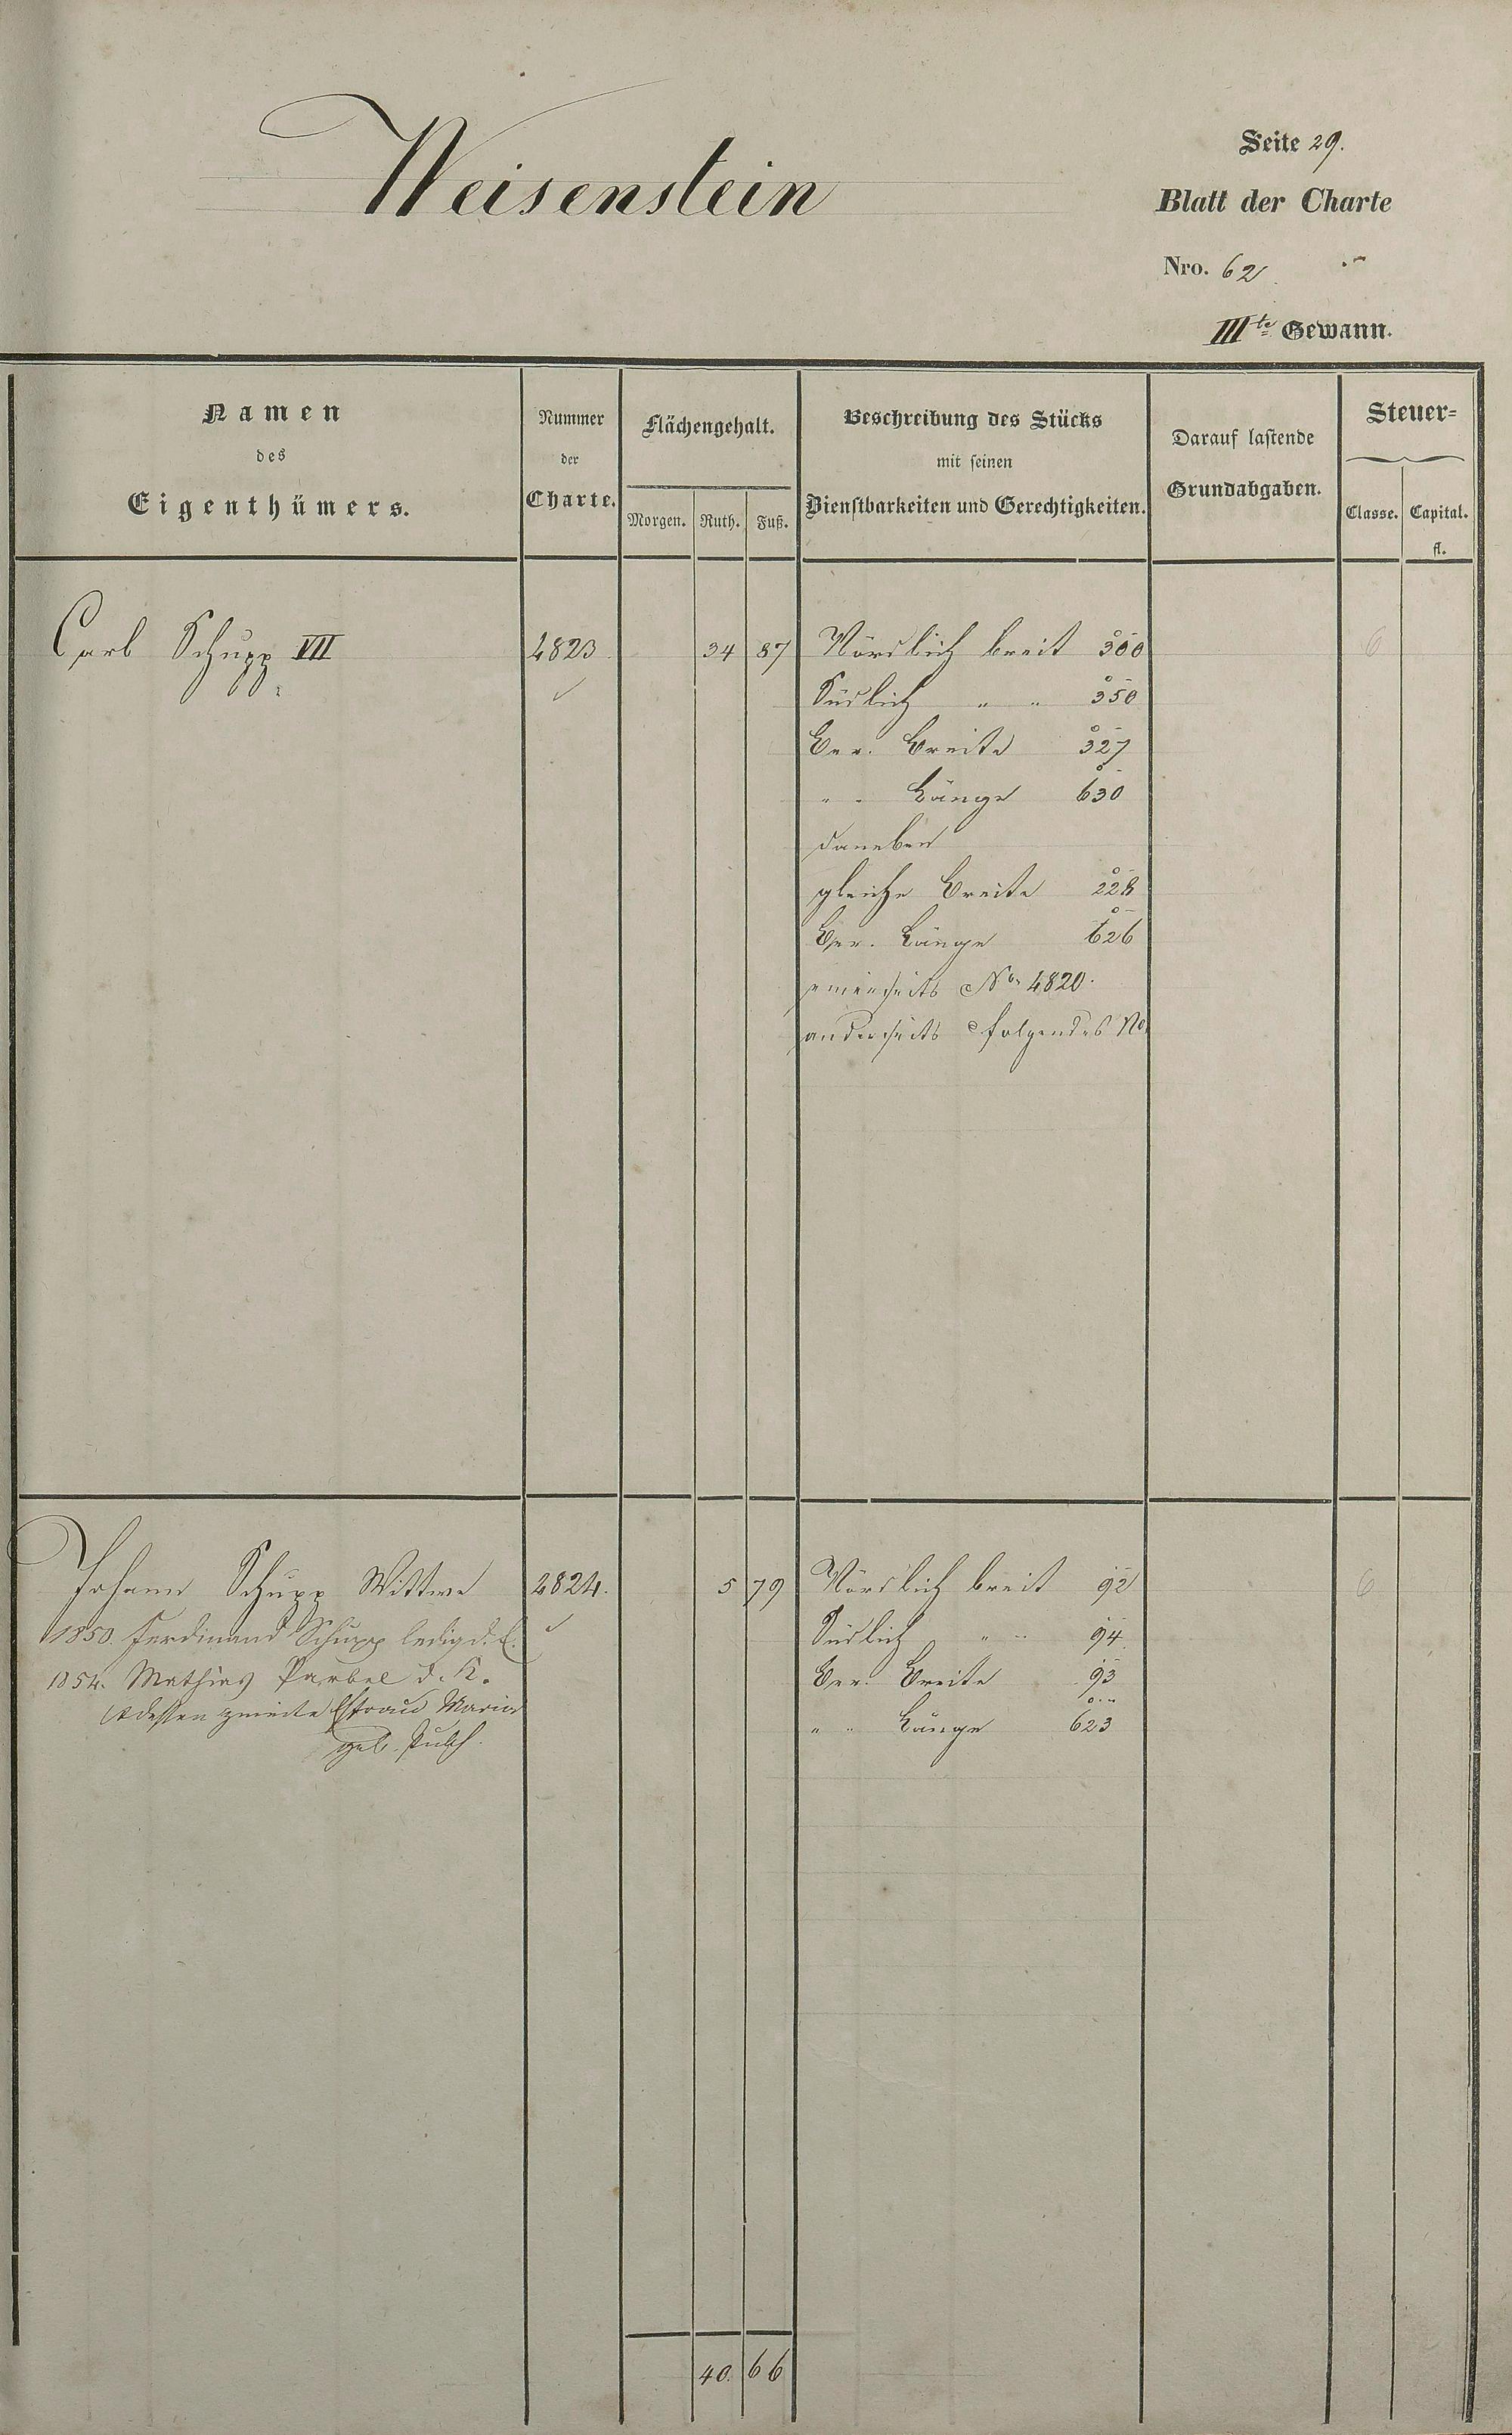 Weisenstein
Seite 29.
Blatt der Charte
Nro. 62
IIIte Gewann.
Namen
des
Eigenthümers.
Nummer
der
Charte.
Flächengehalt.
Morgen. Ruth. Fuß.
Beschreibung des Stücks
mit seinen
Dienstbarkeiten und Gerechtigkeiten.
Darauf lastende
Grundabgaben.
Steuer-
Classe. Capital.
fl.
Carl Schupp VII 4823 34 87 Nördlich breit 300 6
Südlich " " 350
Ver. Breite 327
" " Länge 630
daneben
gleiche Breite 228
Ver. Länge 626
einerseits No 4820.
anderseits folgendes No
Johann Schupp Wittwe 4824. 5 79 Nördlich breit 92 6
1850. Ferdinand Schupp ledig d. E. Südlich " " 94
1854. Mathias d. K. Ver. Breite 93
dessen zweite Ehefrau Maria " " Länge 623
geb.
40. 66